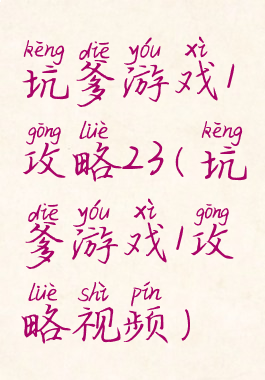 kēng diē yóu xì
坑爹游戏1
gōng lüè kēng
攻略23(坑
diē yóu xì gōng
爹游戏1攻
lüè shì pín
略视频)